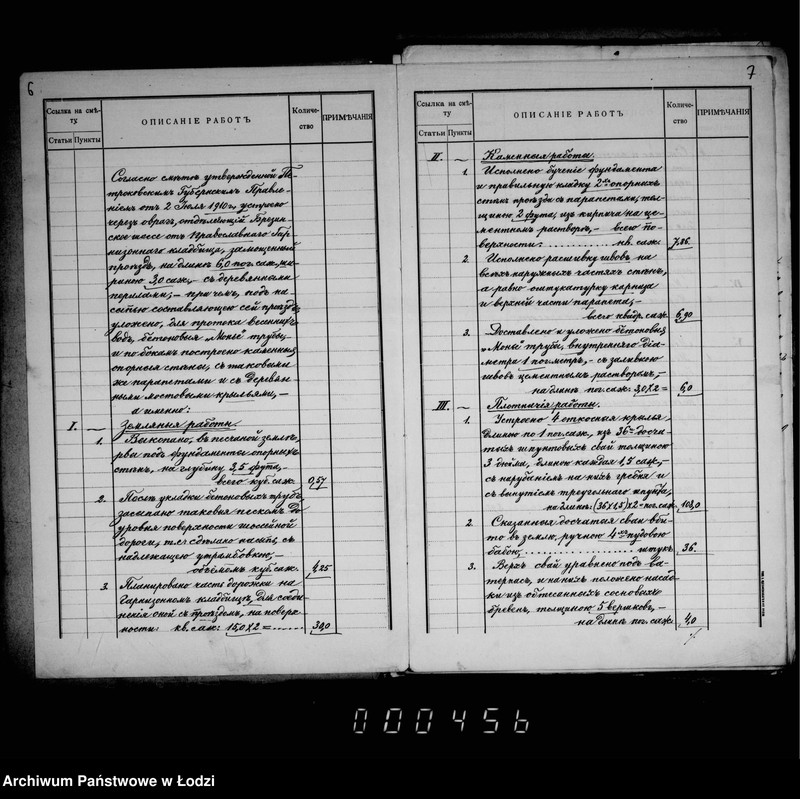 6
Ссылка на смѣту.
Статьи Пункты
ОПИСАНІЕ РАБОТЪ
Количество
ПРИМѢЧАНІЯ
Согласно смѣтѣ утвержденной Пе-
троковскимъ Губернскимъ Правле-
ніемъ отъ 2 Іюля 1910 г., устроено
черезъ оврагъ, отдѣляющій Брезин-
ское шоссе отъ Православнаго Гар-
низоннаго кладбища, замощенный
проѣздъ, на длинѣ 6,0 пог. саж., ши-
риною 3,0 саж., – съ деревянными
перилами; – при чемъ, подъ на-
сыпью составляющею сей проѣздъ,
уложено, для протока весеннихъ
водъ, бетоновыя „Монье" трубы,
и по бокамъ построено каменныя
опорныя стѣны, съ таковыми
же парапетами и съ деревян-
ными мостовыми крыльями, –
а именно:
I. — Земляныя работы.
1. Выкопано, въ песчаной землѣ,
рвы подъ фундаменты опорныхъ
стѣнъ, на глубину 3,5 фута, –
всего куб. саж. 0,57
2. Послѣ укладки бетоновыхъ трубъ,
засыпано таковыя пескомъ до
уровня поверхности шоссейной
дороги, т.е. сдѣлано насыпь, съ
надлежащею утрамбовкою, –
объемомъ куб. саж. 4,25
3. Планировано часть дорожки на
Гарнизонномъ кладбищѣ, для соеди-
ненія оной съ проѣздомъ, на поверх-
ности: кв. саж: 15,0 х 2 = 30,0
7
Ссылка на смѣту.
Статьи Пункты
ОПИСАНІЕ РАБОТЪ
Количество
ПРИМѢЧАНІЯ
II. — Каменныя работы.
1. Исполнено бученіе фундамента
и правильную кладку 2хъ опорныхъ
стѣнъ проѣзда съ парапетами, тол-
щиною 2 фута, изъ кирпича на це-
ментномъ растворѣ, – всего по-
верхности: кв. саж. 7,86.
2. Исполнено расшивку швовъ на
всѣхъ наружныхъ частяхъ стѣнъ,
а равно оштукатурку карниза
и верхней части парапета, –
всего квадр. саж. 6,90
3. Доставлено и уложено бетоновыя
„Монье" трубы, внутренняго діа-
метра 1 пог. метръ, – съ заливкою
швовъ цементнымъ растворомъ, –
на длинѣ пог. саж. 3,0 х 2 = 6,0
III. — Плотничія работы.
1. Устроено 4 откосныя крылья
длиною по 1 пог. саж., изъ 36ти досча-
тыхъ шпунтовыхъ свай толщиною
3 дюйма, длиною каждая 1,5 саж., –
съ нарубаніемъ на нихъ гребня и
съ вынутіемъ треугольнаго шпунта,
на длинѣ: (36 х 1,5) х 2 = пог. саж. 108,0
2. Сказанныя досчатыя сваи вби-
то въ землю, ручною 4хъ пудовою
бабою, штукъ 36.
3. Верхъ свай уравнено подъ ва-
терпасъ, и на нихъ положено насад-
ки изъ обтесанныхъ сосновыхъ
бревенъ, толщиною 5 вершковъ, –
на длинѣ пог. саж. 4,0
000456
Archiwum Państwowe w Łodzi